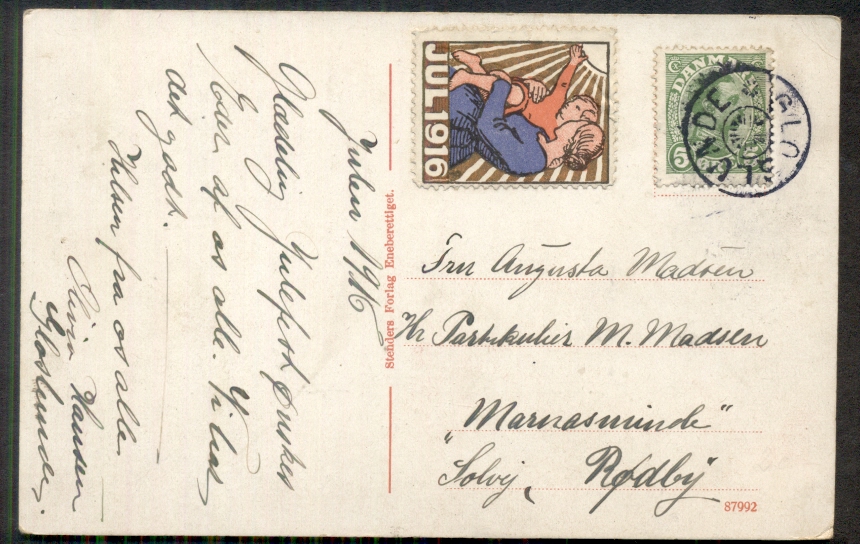 Julen 1916
Glædelig Julefest ønskes
Eder af os alle. Vi har
det godt.
Hilsen fra os alle.
Hansen
Gloslunde.
Stenders Forlag Eneberettiget.
JUL 1916
DANMARK
5
GLOSLUNDE
Fru Augusta Madsen
Hr Partikulier M. Madsen
"Marnasminde"
Solvej, Rødby
87992